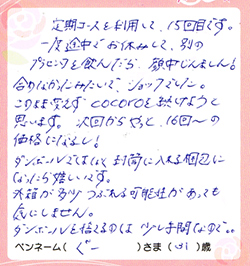 定期コースを利用して、15回目です。
一度途中でお休みして、別の
プラセンタを飲んだら 顔中じんましん!
合わなかったみたいで、ショックでした。
このまま変えず cocoroを続けようと
思います。次回からやっと、16回〜の
価格になるし!
ダンボールではなく封筒に入れる梱包に
なったら嬉しいです。
外箱が多少つぶれる可能性があっても
気にしません。
ダンボールを捨てるのは 少し手間なので。。
ペンネーム( ぐー )さま( 41 )歳